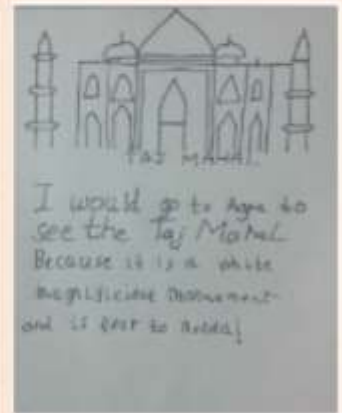 TAJ MAHAL
I would go to Agra to
see the Taj Mahal
Because it is a white
magnificiant monument
and is